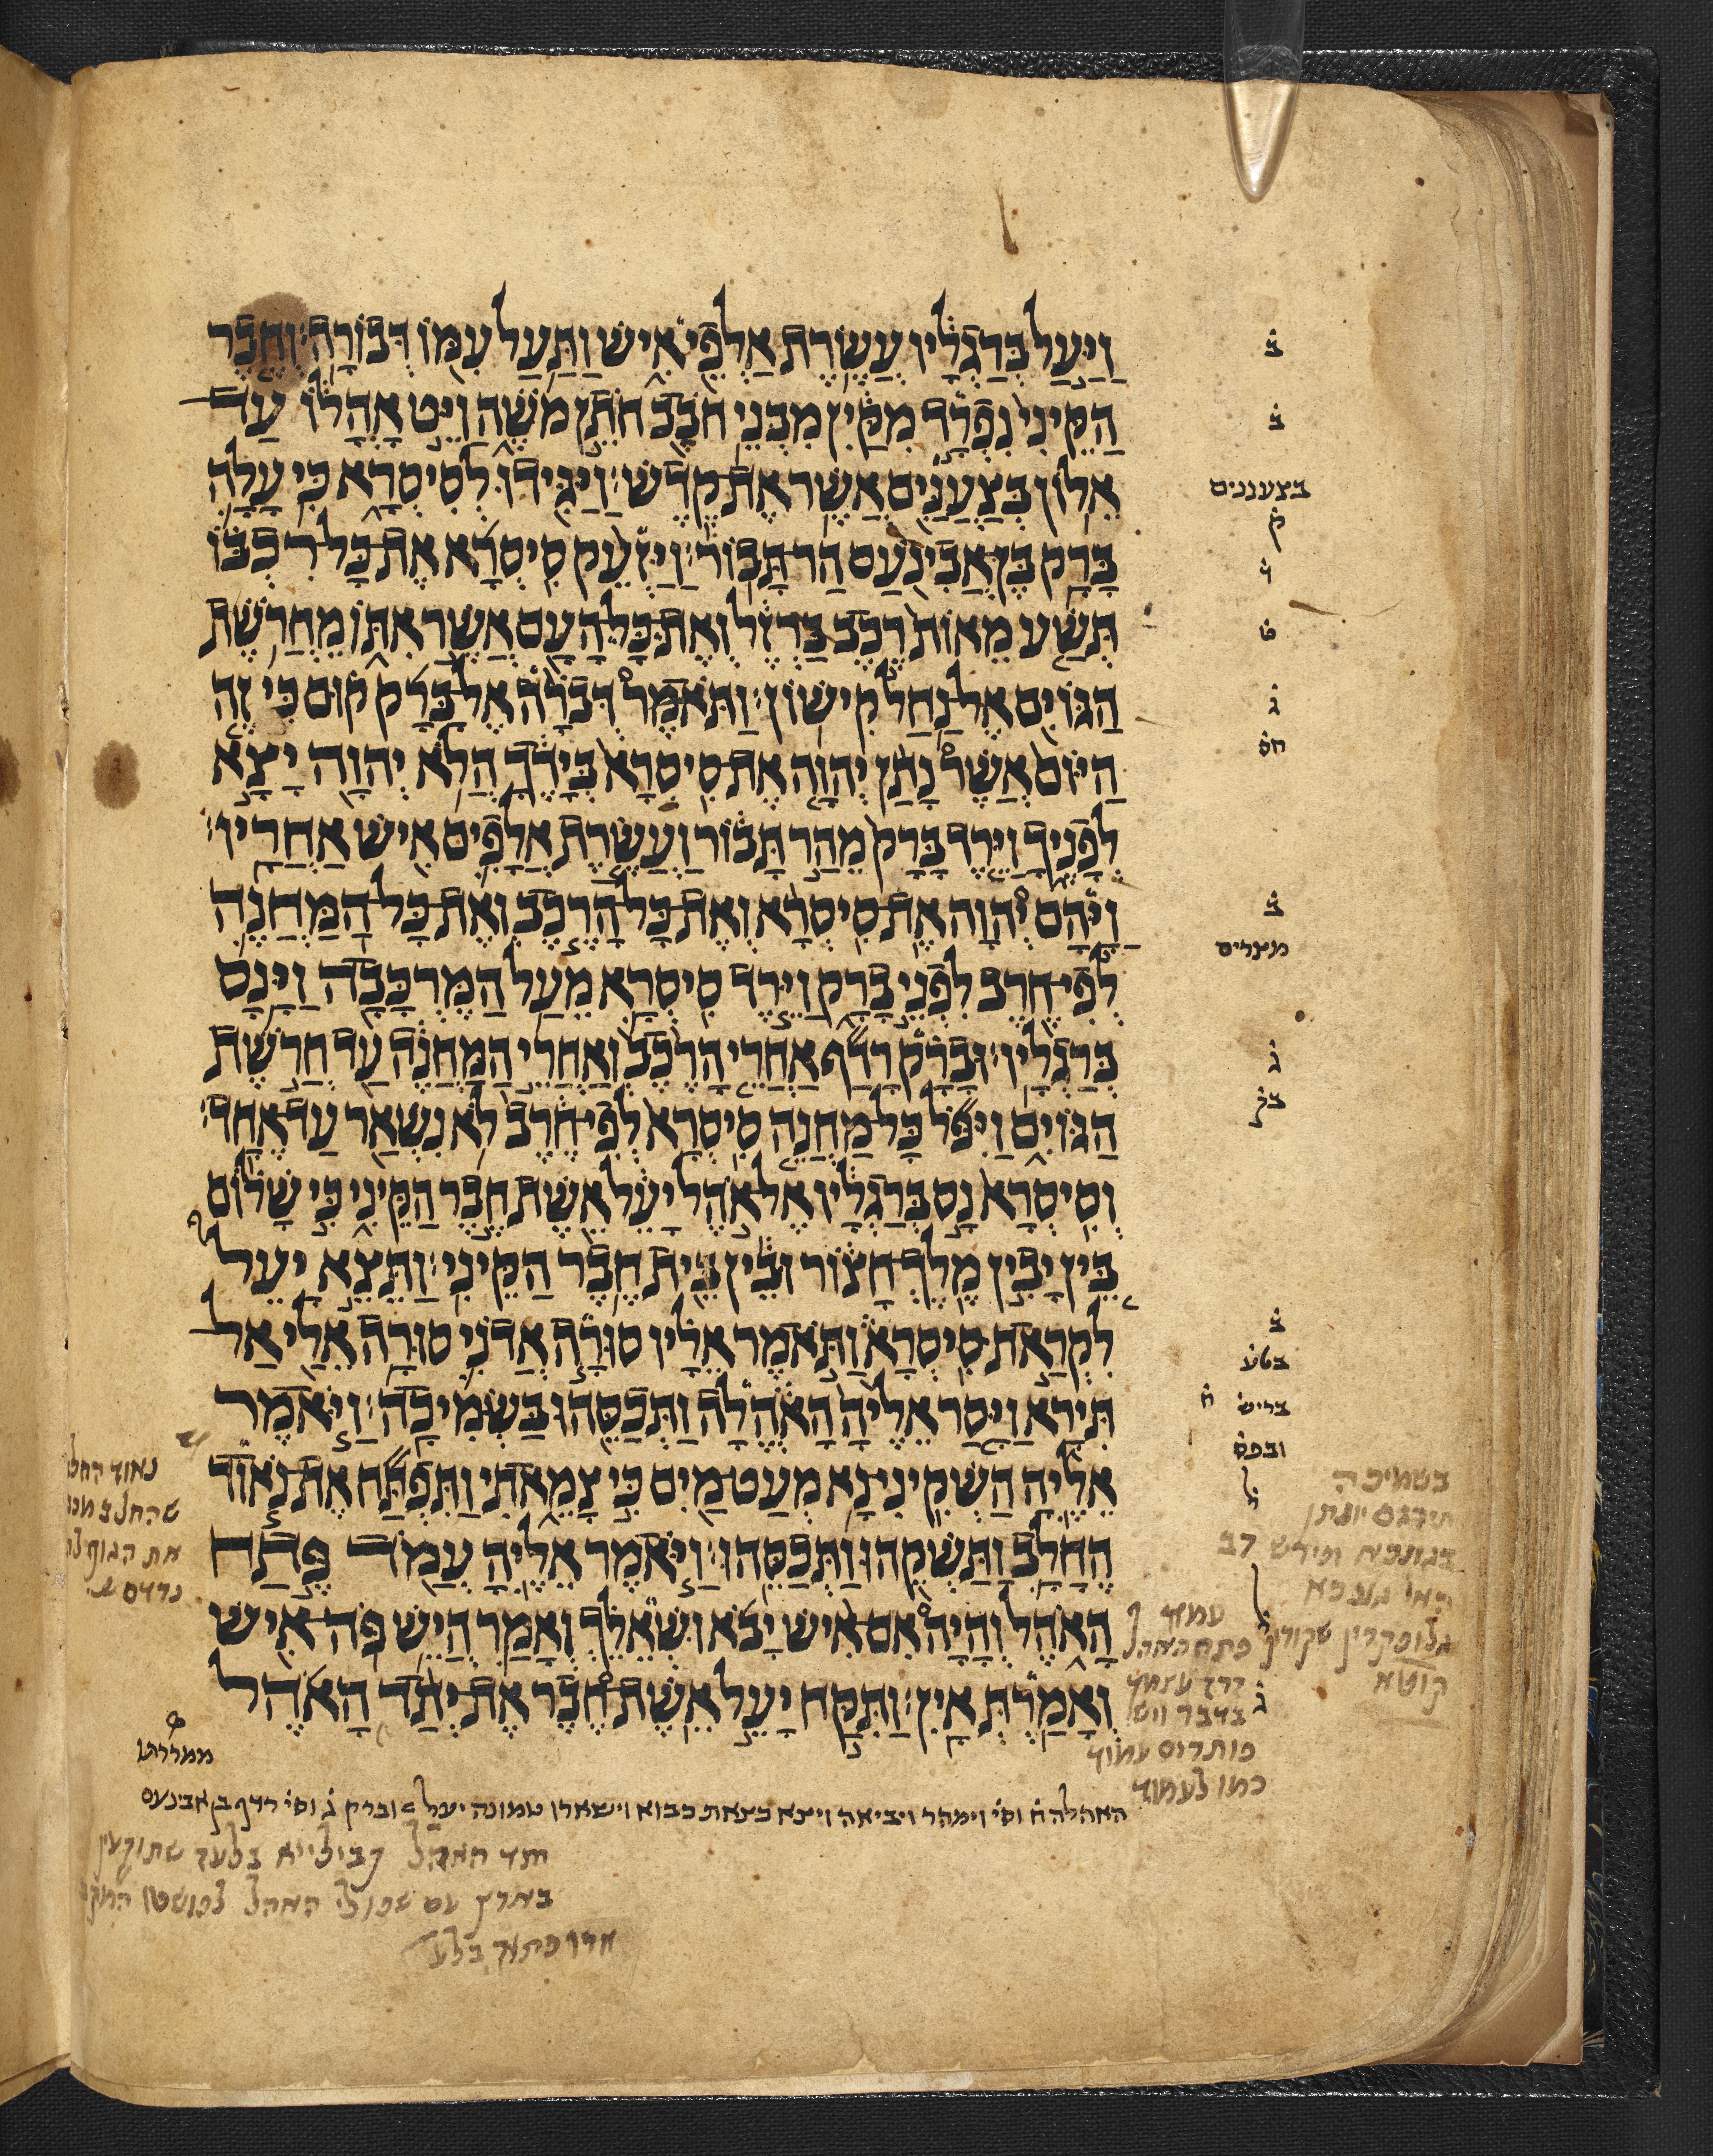 וַיַּעַל בְּרַגְלָיו עֲשֶׂרֶת אַלְפֵי אִישׁ וַתַּעַל עִמּוֹ דְּבוֹרָה׃ וְחֶבֶר
הַקֵּינִי נִפְרָד מִקַּיִן מִבְּנֵי חֹבָב חֹתֵן מֹשֶׁה וַיֵּט אָהֳלוֹ עַד
אֵלוֹן בְּצַעֲנַּיִם אֲשֶׁר אֶת קֶדֶשׁ׃ וַיַּגִּידוּ לְסִיסְרָא כִּי עָלָה
בָּרָק בֶּן אֲבִינֹעַם הַר תָּבוֹר׃ וַיַּזְעֵק סִיסְרָא אֶת כָּל רִכְבּוֹ
תְּשַׁע מֵאוֹת רֶכֶב בַּרְזֶל וְאֶת כָּל הָעָם אֲשֶׁר אִתּוֹ מֵחֲרֹשֶׁת
הַגּוֹיִם אֶל נַחַל קִישׁוֹן׃ וַתֹּאמֶר דְּבֹרָה אֶל בָּרָק קוּם כִּי זֶה
הַיּוֹם אֲשֶׁר נָתַן יְהוָה אֶת סִיסְרָא בְּיָדֶךָ הֲלֹא יְהוָה יָצָא
לְפָנֶיךָ וַיֵּרֶד בָּרָק מֵהַר תָּבוֹר וַעֲשֶׂרֶת אֲלָפִים אִישׁ אַחֲרָיו׃
וַיָּהָם יְהוָה אֶת סִיסְרָא וְאֶת כָּל הָרֶכֶב וְאֶת כָּל הַמַּחֲנֶה
לְפִי חֶרֶב לִפְנֵי בָרָק וַיֵּרֶד סִיסְרָא מֵעַל הַמֶּרְכָּבָה וַיָּנָס
בְּרַגְלָיו׃ וּבָרָק רָדַף אַחֲרֵי הָרֶכֶב וְאַחֲרֵי הַמַּחֲנֶה עַד חֲרֹשֶׁת
הַגּוֹיִם וַיִּפֹּל כָּל מַחֲנֵה סִיסְרָא לְפִי חֶרֶב לֹא נִשְׁאַר עַד אֶחָד׃
וְסִיסְרָא נָס בְּרַגְלָיו אֶל אֹהֶל יָעֵל אֵשֶׁת חֶבֶר הַקֵּינִי כִּי שָׁלוֹם
בֵּין יָבִין מֶלֶךְ חָצוֹר וּבֵין בֵּית חֶבֶר הַקֵּינִי׃ וַתֵּצֵא יָעֵל
לִקְרַאת סִיסְרָא וַתֹּאמֶר אֵלָיו סוּרָה אֲדֹנִי סוּרָה אֵלַי אַל
תִּירָא וַיָּסַר אֵלֶיהָ הָאֹהֱלָה וַתְּכַסֵּהוּ בַּשְּׂמִיכָה׃ וַיֹּאמֶר
אֵלֶיהָ הַשְׁקִינִי נָא מְעַט מַיִם כִּי צָמֵאתִי וַתִּפְתַּח אֶת נֹאוד
הֶחָלָב וַתַּשְׁקֵהוּ וַתְּכַסֵּהוּ׃ וַיֹּאמֶר אֵלֶיהָ עֲמֹד פֶּתַח
הָאֹהֶל וְהָיָה אִם אִישׁ יָבֹא וּשְׁאֵלֵךְ וְאָמַר הֲיֵשׁ פֹּה אִישׁ
וְאָמַרְתְּ אָיִן׃ וַתִּקַּח יָעֵל אֵשֶׁת חֶבֶר אֶת יְתַד הָאֹהֶל
ב
ב
בצעננים
ק
ו
ט
ג
חס
ב
מצרים
ג
ב
בטע
בריש
ובפס
ל
ל
ג
בשמיכה
תירגם יונתן
עמוד
פתח האהל
פותרים עמוד
כמו לעמוד
האהלה ח וס׳ וימהר ויביאה ויצא כצאת כבוא וישארו טמונה יעל וברק ג וס׳ רדף בן אבינעם
יתד האהל קבילייא בלעז שתוקעין
בארץ עם שפולי האהל